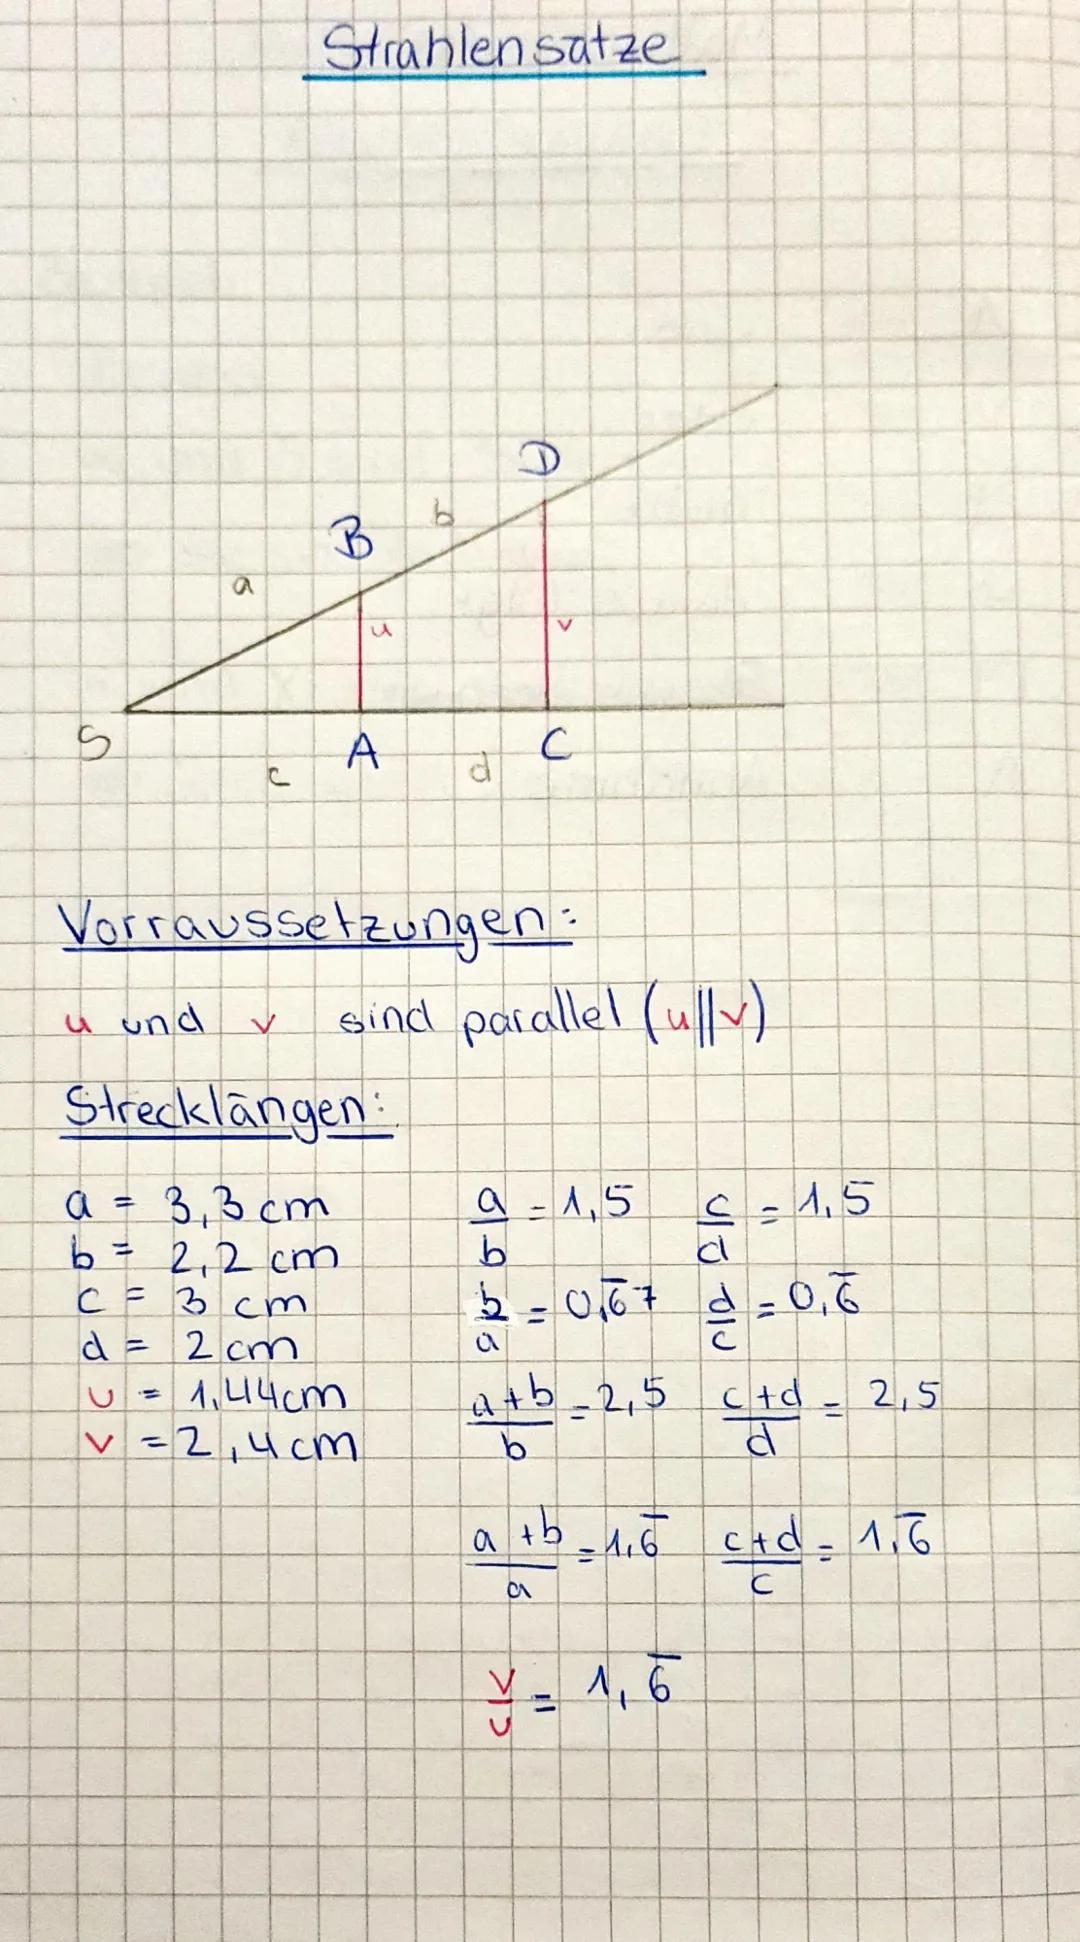 Strahlensätze
D
b
B
a
u
v
S
A
C
c
d
Vorraussetzungen:
u und v sind parallel (u||v)
Strecklängen:
a = 3,3 cm
b = 2,2 cm
c = 3 cm
d = 2 cm
u = 1,44cm
v = 2,4 cm
a/b = 1,5 c/d = 1,5
b/a = 0,6̅7 d/c = 0,6̅
a+b/b = 2,5 c+d/d = 2,5
a+b/a = 1,6̅ c+d/c = 1,6̅
v/u = 1,6̅